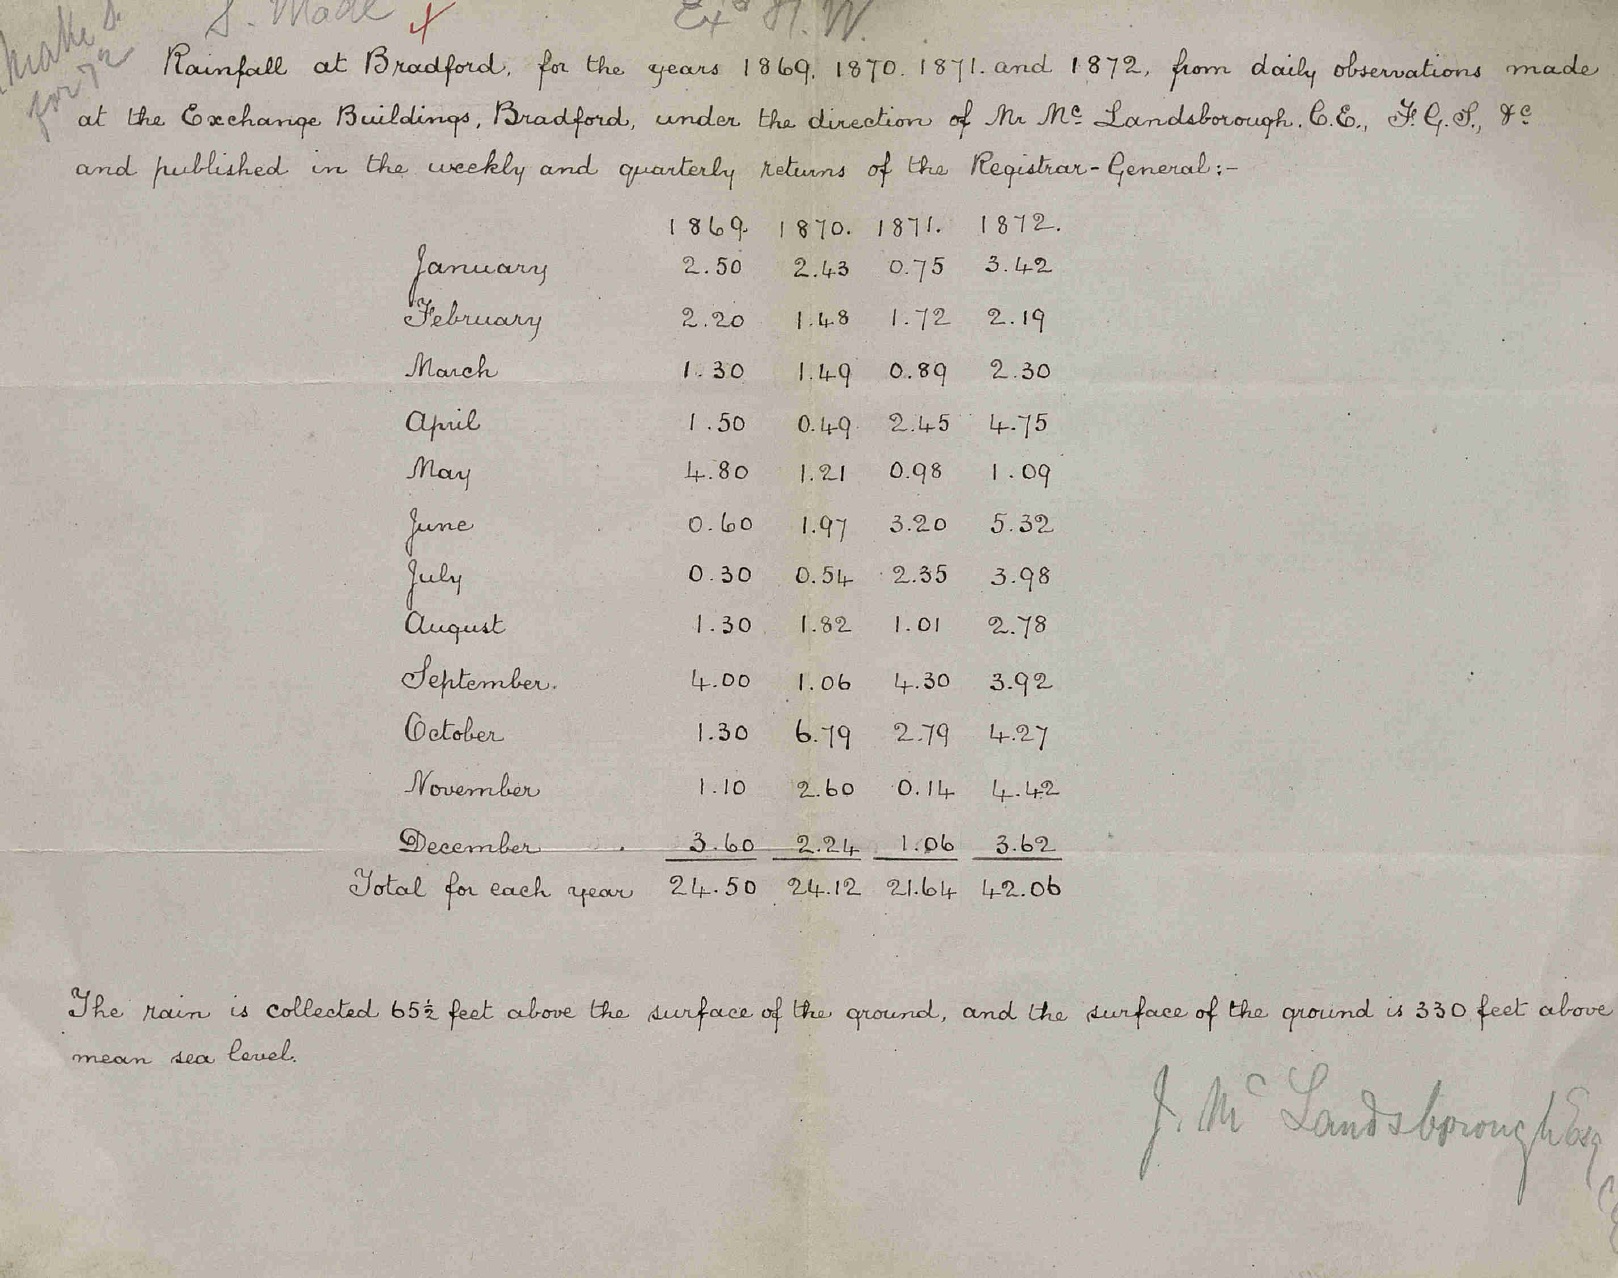 Make S.
for 72
S. Made X
Exd H.W.
Rainfall at Bradford, for the years 1869. 1870. 1871. and 1872, from daily observations made
at the Exchange Buildings, Bradford, under the direction of Mr Mc Landsborough. C.E., F.G.S., &c
and published in the weekly and quarterly returns of the Registrar-General:-
1869. 1870. 1871. 1872.
January 2.50 2.43 0.75 3.42
February 2.20 1.48 1.72 2.19
March 1.30 1.49 0.89 2.30
April 1.50 0.49 2.45 4.75
May 4.80 1.21 0.98 1.09
June 0.60 1.97 3.20 5.32
July 0.30 0.54 2.35 3.98
August 1.30 1.82 1.01 2.78
September. 4.00 1.06 4.30 3.92
October 1.30 6.79 2.79 4.27
November 1.10 2.60 0.14 4.42
December 3.60 2.24 1.06 3.62
Total for each year 24.50 24.12 21.64 42.06
The rain is collected 65½ feet above the surface of the ground, and the surface of the ground is 330 feet above
mean sea level.
J. Mc Landsborough Esq